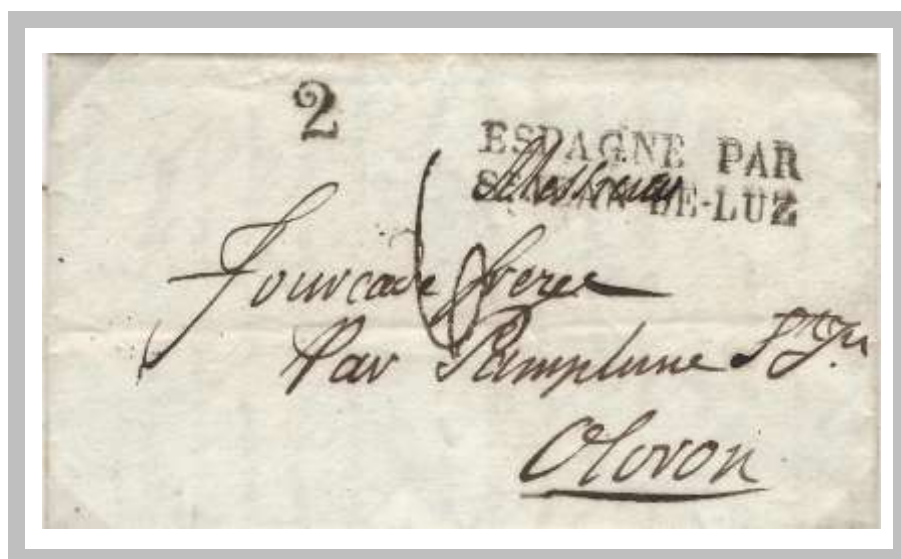 2
ESPAGNE PAR
ST-JEAN-DE-LUZ
6
Fourcade freres
Par Pamplune St Jn
Oloron